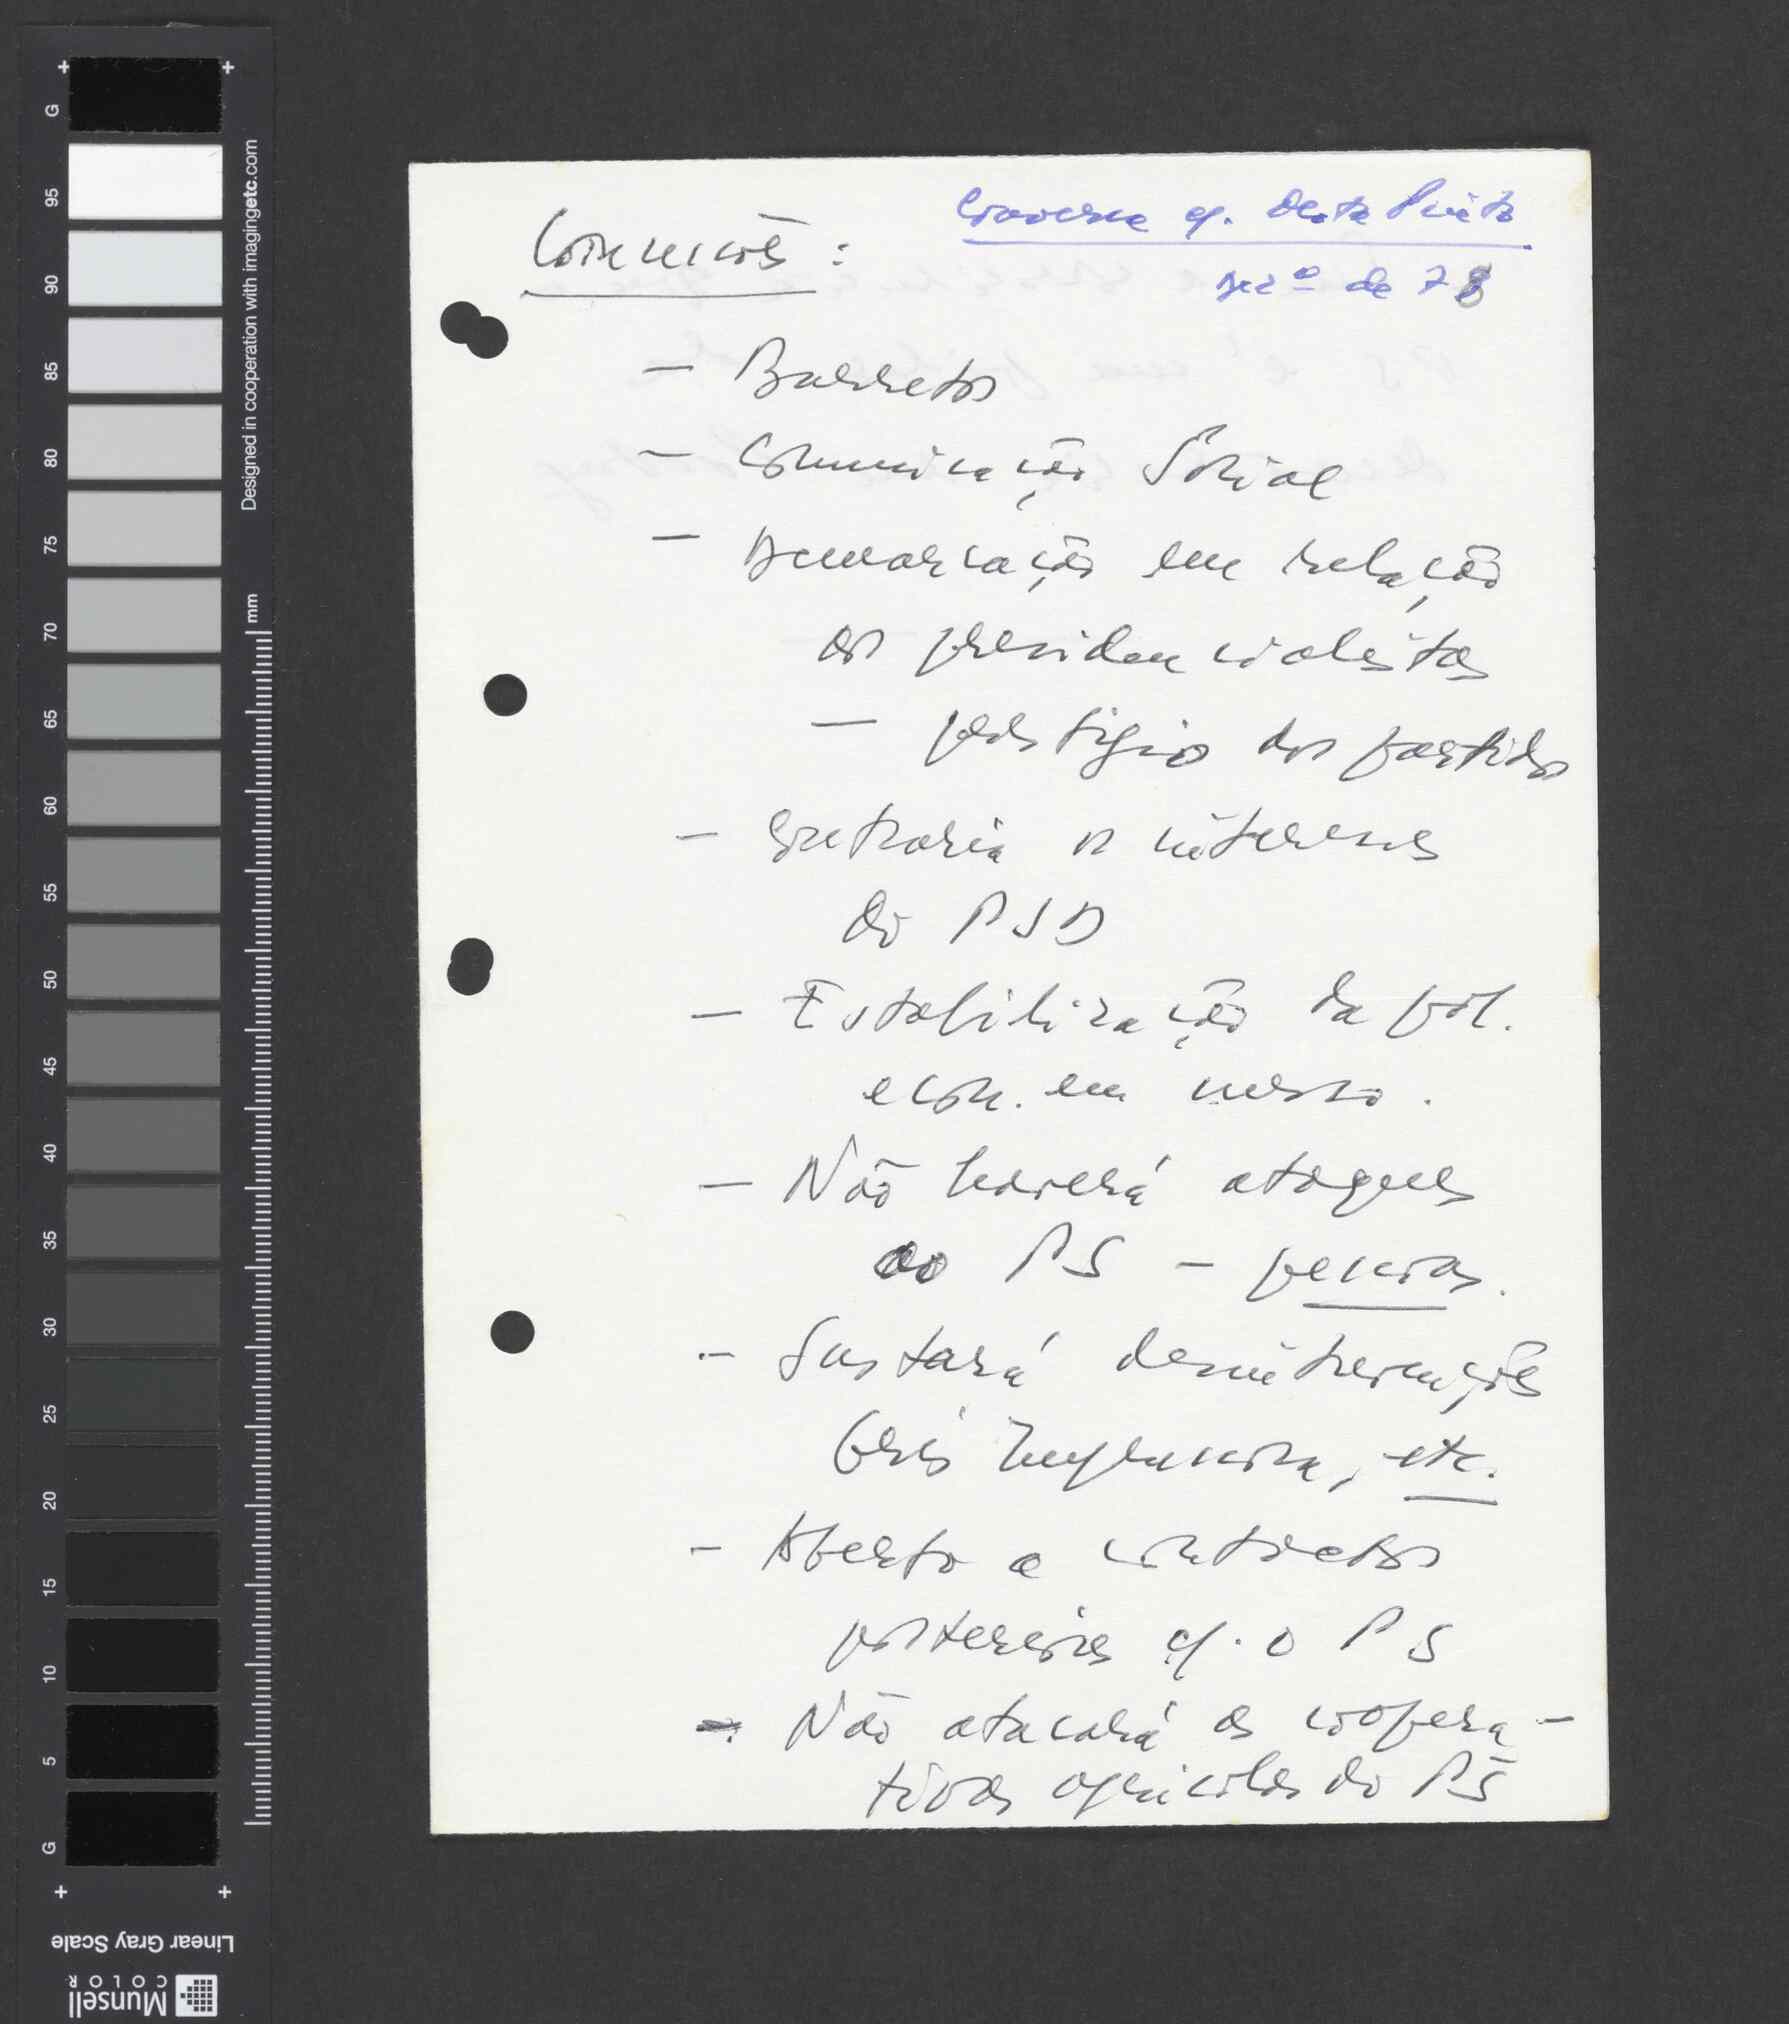 Conversa c/. Mota Pinto
Dezº de 78
Comunicões :
— Barretos
— Comunicação Social
— Demarcação em relação
os presidencialistas
— prestígio dos partidos
— Contraria os interesses
do PSD
— Estabilização da pol.
econ. em março.
— Não haverá ataques
ao PS –
— Sustará desintervenções
Grão etc.
— Aberto a contactos
posteriores c/. o PS
— Não atacará as coopera-
tivas agrícolas do PS
G
95
90
85
80
75
70
65
60
55
50
45
40
35
30
25
20
15
10
5
G
mm
Designed in cooperation with imagingetc.com
Linear Gray Scale
Munsell
COLOR